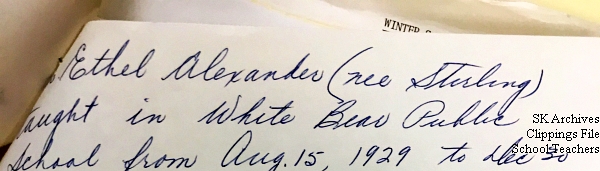 WINTER
Ethel Alexander (nee Stirling)
taught in White Bear Public
School from Aug. 15, 1929 to Dec 30
SK Archives
Clippings File
School Teachers